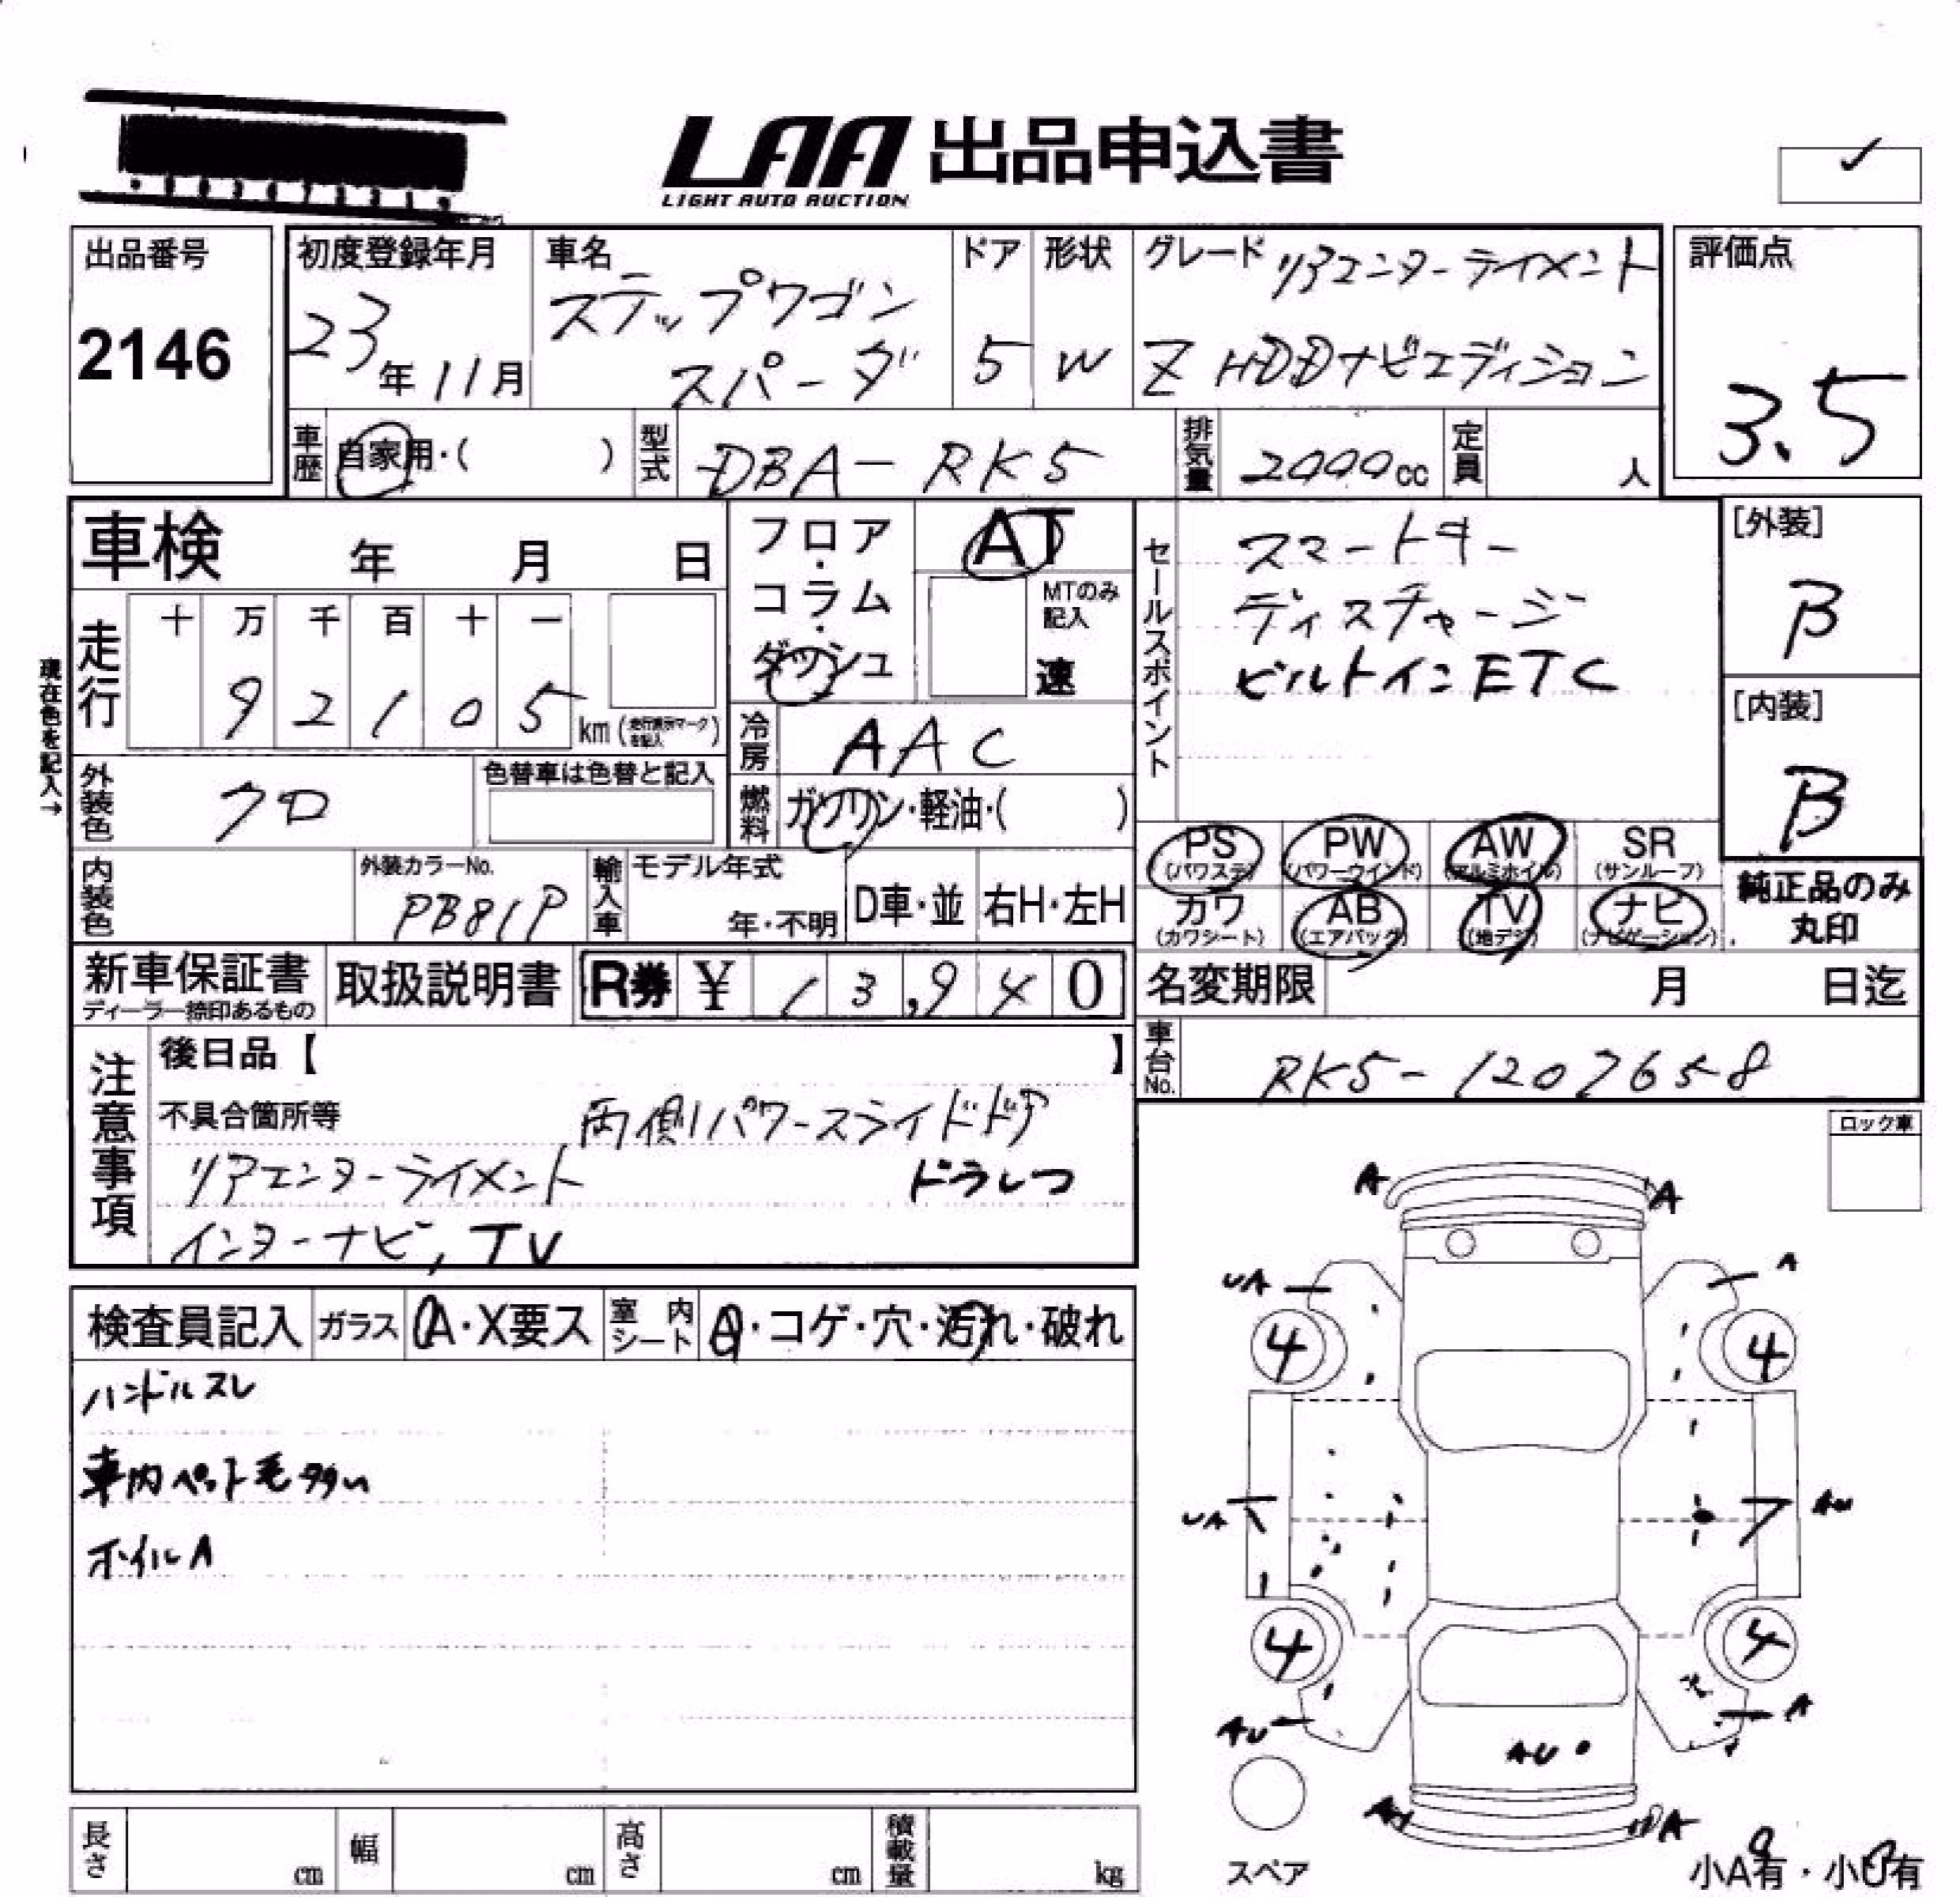 LAA 出品申込書
LIGHT AUTO AUCTION
出品番号
2146
初度登録年月
23年11月
車名
ステップワゴン
スパーダ
ドア
5
形状
W
グレード リアエンターテイメント
Z HDDナビエディション
評価点
3.5
車歴 自家用・( )
型式 DBA-RK5
排気量 2000cc
定員 人
車検 年 月 日
フロア・コラム・ダッシュ
AT
MTのみ記入
速
セールスポイント
スマートキー
ディスチャージ
ビルトインETC
[外装]
B
[内装]
B
現在色を記入→
走行
十 万 千 百 十 一
9 2 1 0 5 km (走行表示マークを記入)
冷房 AAC
燃料 ガソリン・軽油・( )
外装色 クロ
色替車は色替と記入
PS (パワステ)
PW (パワーウインド)
AW (アルミホイル)
SR (サンルーフ)
カワ (カワシート)
AB (エアバック)
TV (地デジ)
ナビ (ナビゲーション)
純正品のみ
丸印
内装色
外装カラーNo.
PB81P
輸入車
モデル年式
年・不明
D車・並
右H・左H
新車保証書
ディーラー捺印あるもの
取扱説明書
R券 ¥ 13,940
名変期限 月 日迄
車台No. RK5-1207658
注意事項
後日品【 】
不具合箇所等 両側パワースライドドア
リアエンターテイメント ドラレコ
インターナビ, TV
ロック車
検査員記入
ガラス A・X要ス
室内シート A・コゲ・穴・汚れ・破れ
ハンドルスレ
車内ペット毛多い
ホイルA
A A
UA A
4 4
UA AU
4 4
AU A
AU
A A
スペア
小A有・小U有
長さ cm
幅 cm
高さ cm
積載量 kg